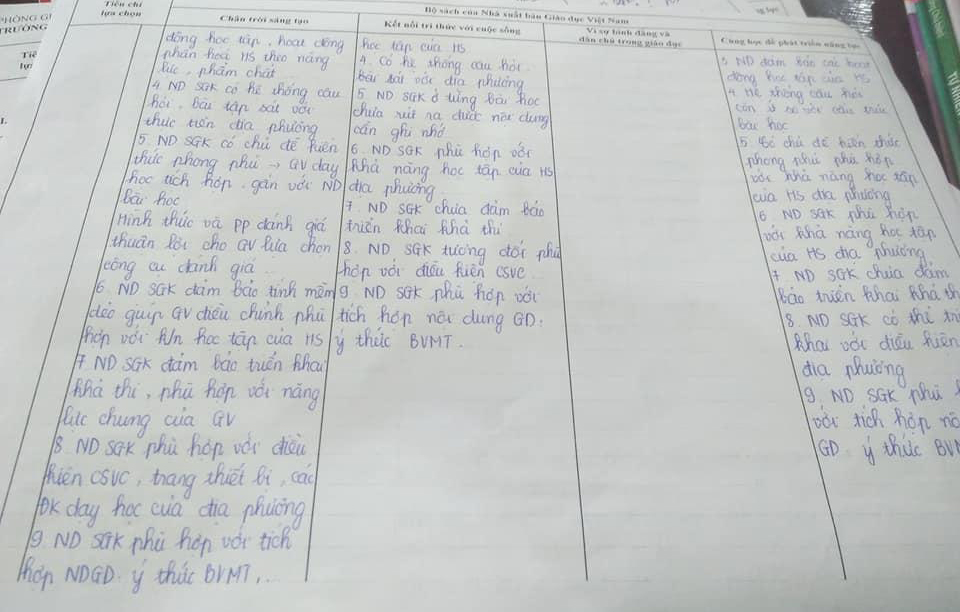 PHÒNG G
TRƯỜNG
Tiê
lựa
Tiêu chí
lựa chọn
Bộ sách của Nhà xuất bản Giáo dục Việt Nam
Chân trời sáng tạo
Kết nối tri thức với cuộc sống
Vì sự bình đẳng và
dân chủ trong giáo dục
Cùng học để phát triển năng lực
động học tập, hoạt động
phân hoá HS theo năng
lực, phẩm chất
4. ND SGK có hệ thống câu
hỏi, bài tập sát với
thực tiễn địa phương
5. ND SGK có chủ đề kiến
thức phong phú → GV dạy
học tích hợp, gắn với ND
bài học
Hình thức và PP đánh giá
thuận lợi cho GV lựa chọn
công cụ đánh giá
6. ND SGK đảm bảo tính mềm
dẻo giúp GV điều chỉnh phù
hợp với k/n học tập của HS
7 ND SGK đảm bảo triển khai
khả thi, phù hợp với năng
lực chung của GV
8. ND SGK phù hợp với điều
kiện CSVC, trang thiết bị, các
ĐK dạy học của địa phương
9. ND SGK phù hợp với tích
hợp NDGD. ý thức BVMT,...
học tập của HS
4. Có hệ thống câu hỏi
bài sát với địa phương
5. ND SGK ở từng bài học
chưa rút ra được nội dung
cần ghi nhớ
6. ND SGK phù hợp với
khả năng học tập của HS
địa phương.
7. ND SGK chưa đảm bảo
triển khai khả thi
8. ND SGK tương đối phù
hợp với điều kiện CSVC
9. ND SGK phù hợp với
tích hợp nội dung GD.
ý thức BVMT.
3 ND đảm bảo các hoạt
động học tập của HS
4 Hệ thống câu hỏi
còn ít so với cấu trúc
bài học
5. Có chủ đề kiến thức
phong phú phù hợp
với khả năng học tập
của HS địa phương
6. ND SGK phù hợp
với khả năng học tập
của HS địa phương
7 ND SGK chưa đảm
bảo triển khai khả th
8. ND SGK có thể tri
khai với điều kiện
địa phương
9. ND SGK phù h
với tích hợp nộ
GD. ý thức BVM